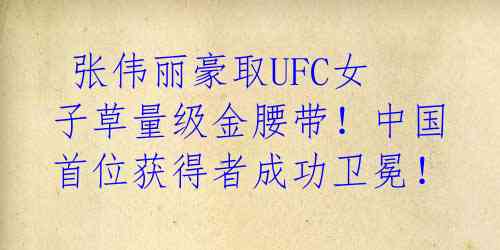 张伟丽豪取UFC女
子草量级金腰带！中国
首位获得者成功卫冕！